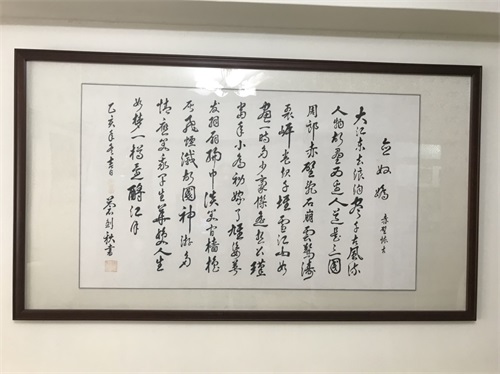 念奴嬌 赤壁懷古
大江東去浪淘盡千古風流
人物故壘西邊人道是三國
周郎赤壁亂石崩雲驚濤
裂岸卷起千堆雪江山如
畫一時多少豪傑遙想公瑾
當年小喬初嫁了雄姿英
發羽扇綸巾談笑間檣櫓
灰飛煙滅故國神游多
情應笑我早生華髮人生
如夢一樽還酹江月
乙亥年冬吉日
劍秋書